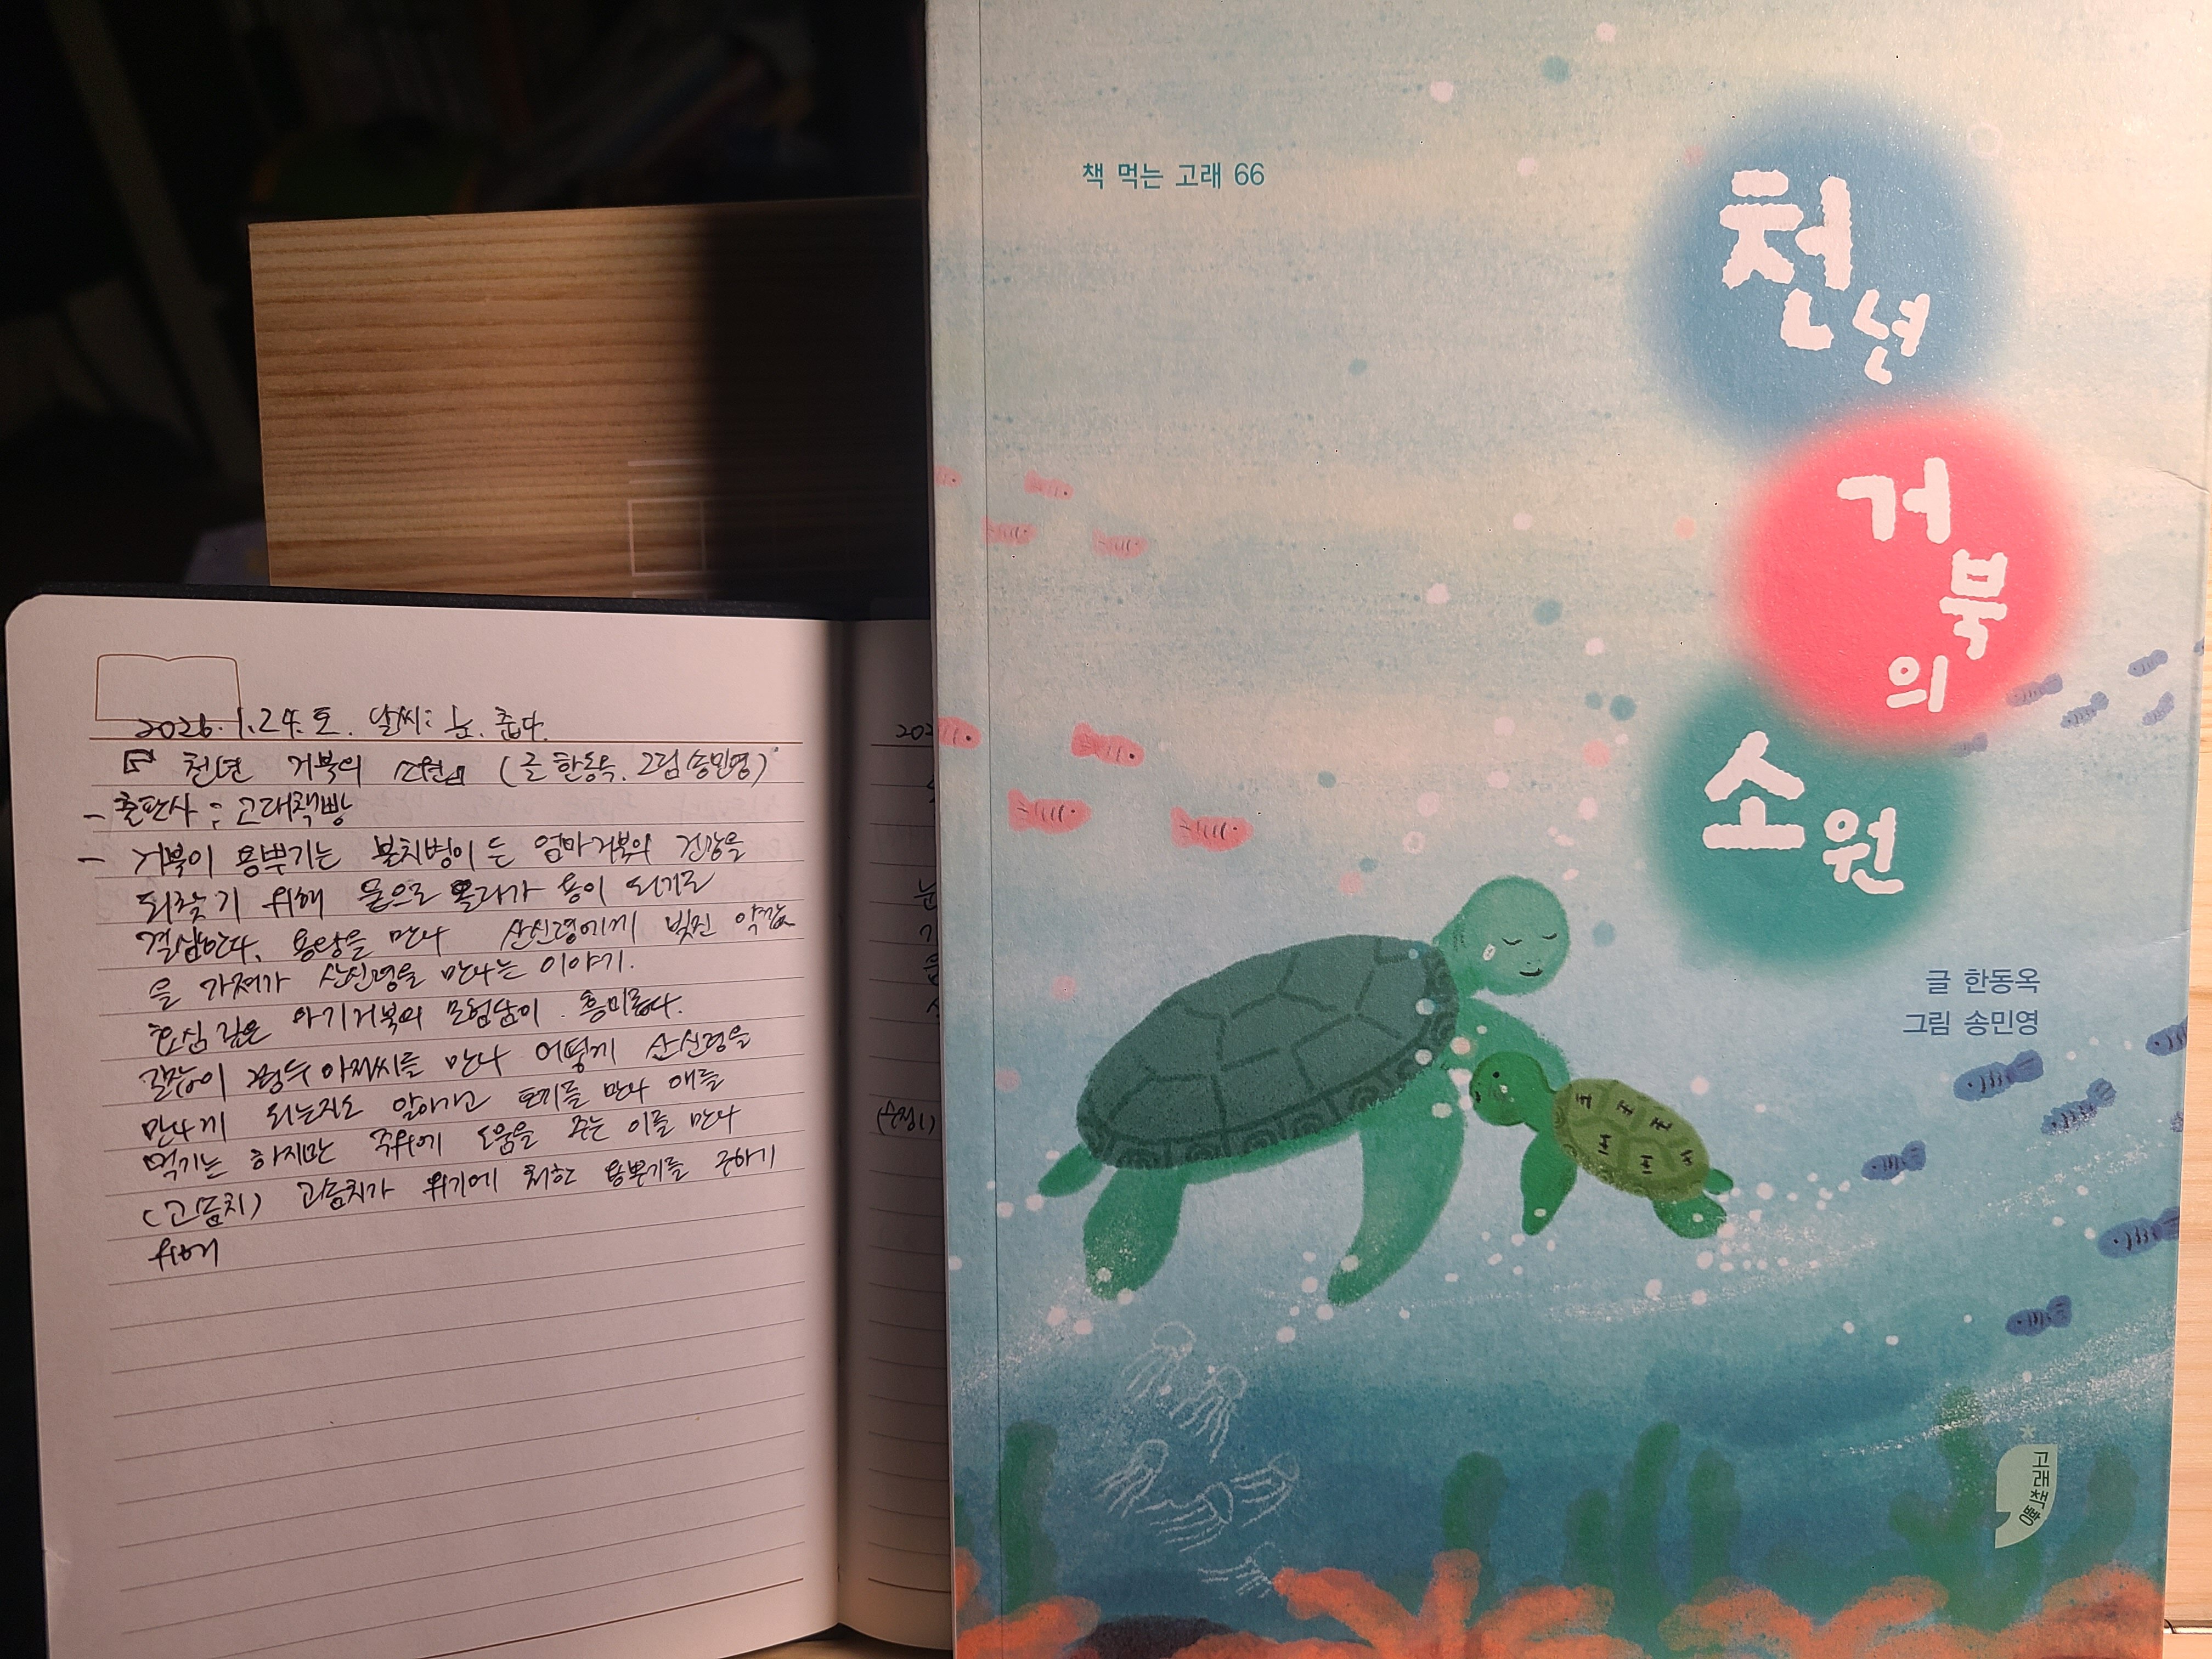 2026. 1. 24. 토. 날씨: 눈. 춥다.
천년 거북의 소원 (글 한동옥. 그림 송민영)
- 출판사 : 고래책빵
- 거북이 용뿌기는 불치병이 든 엄마거북의 건강을
되찾기 위해 뭍으로 올라가 용이 되기로
결심한다. 용왕을 만나 산신령에게 빚진 약값
을 가져가 산신령을 만나는 이야기.
효심 깊은 아기거북의 모험담이 흥미롭다.
갈장이 아저씨를 만나 어떻게 산신령을
만나게 되는지도 알아가고 토끼를 만나 애를
먹기는 하지만 주위에 도움을 주는 이를 만나
(고슴치) 고슴치가 위기에 처한 용뿌기를 구하기
위해
202
(수정!)
책 먹는 고래 66
천년
거북의
소원
글 한동옥
그림 송민영
고래책빵